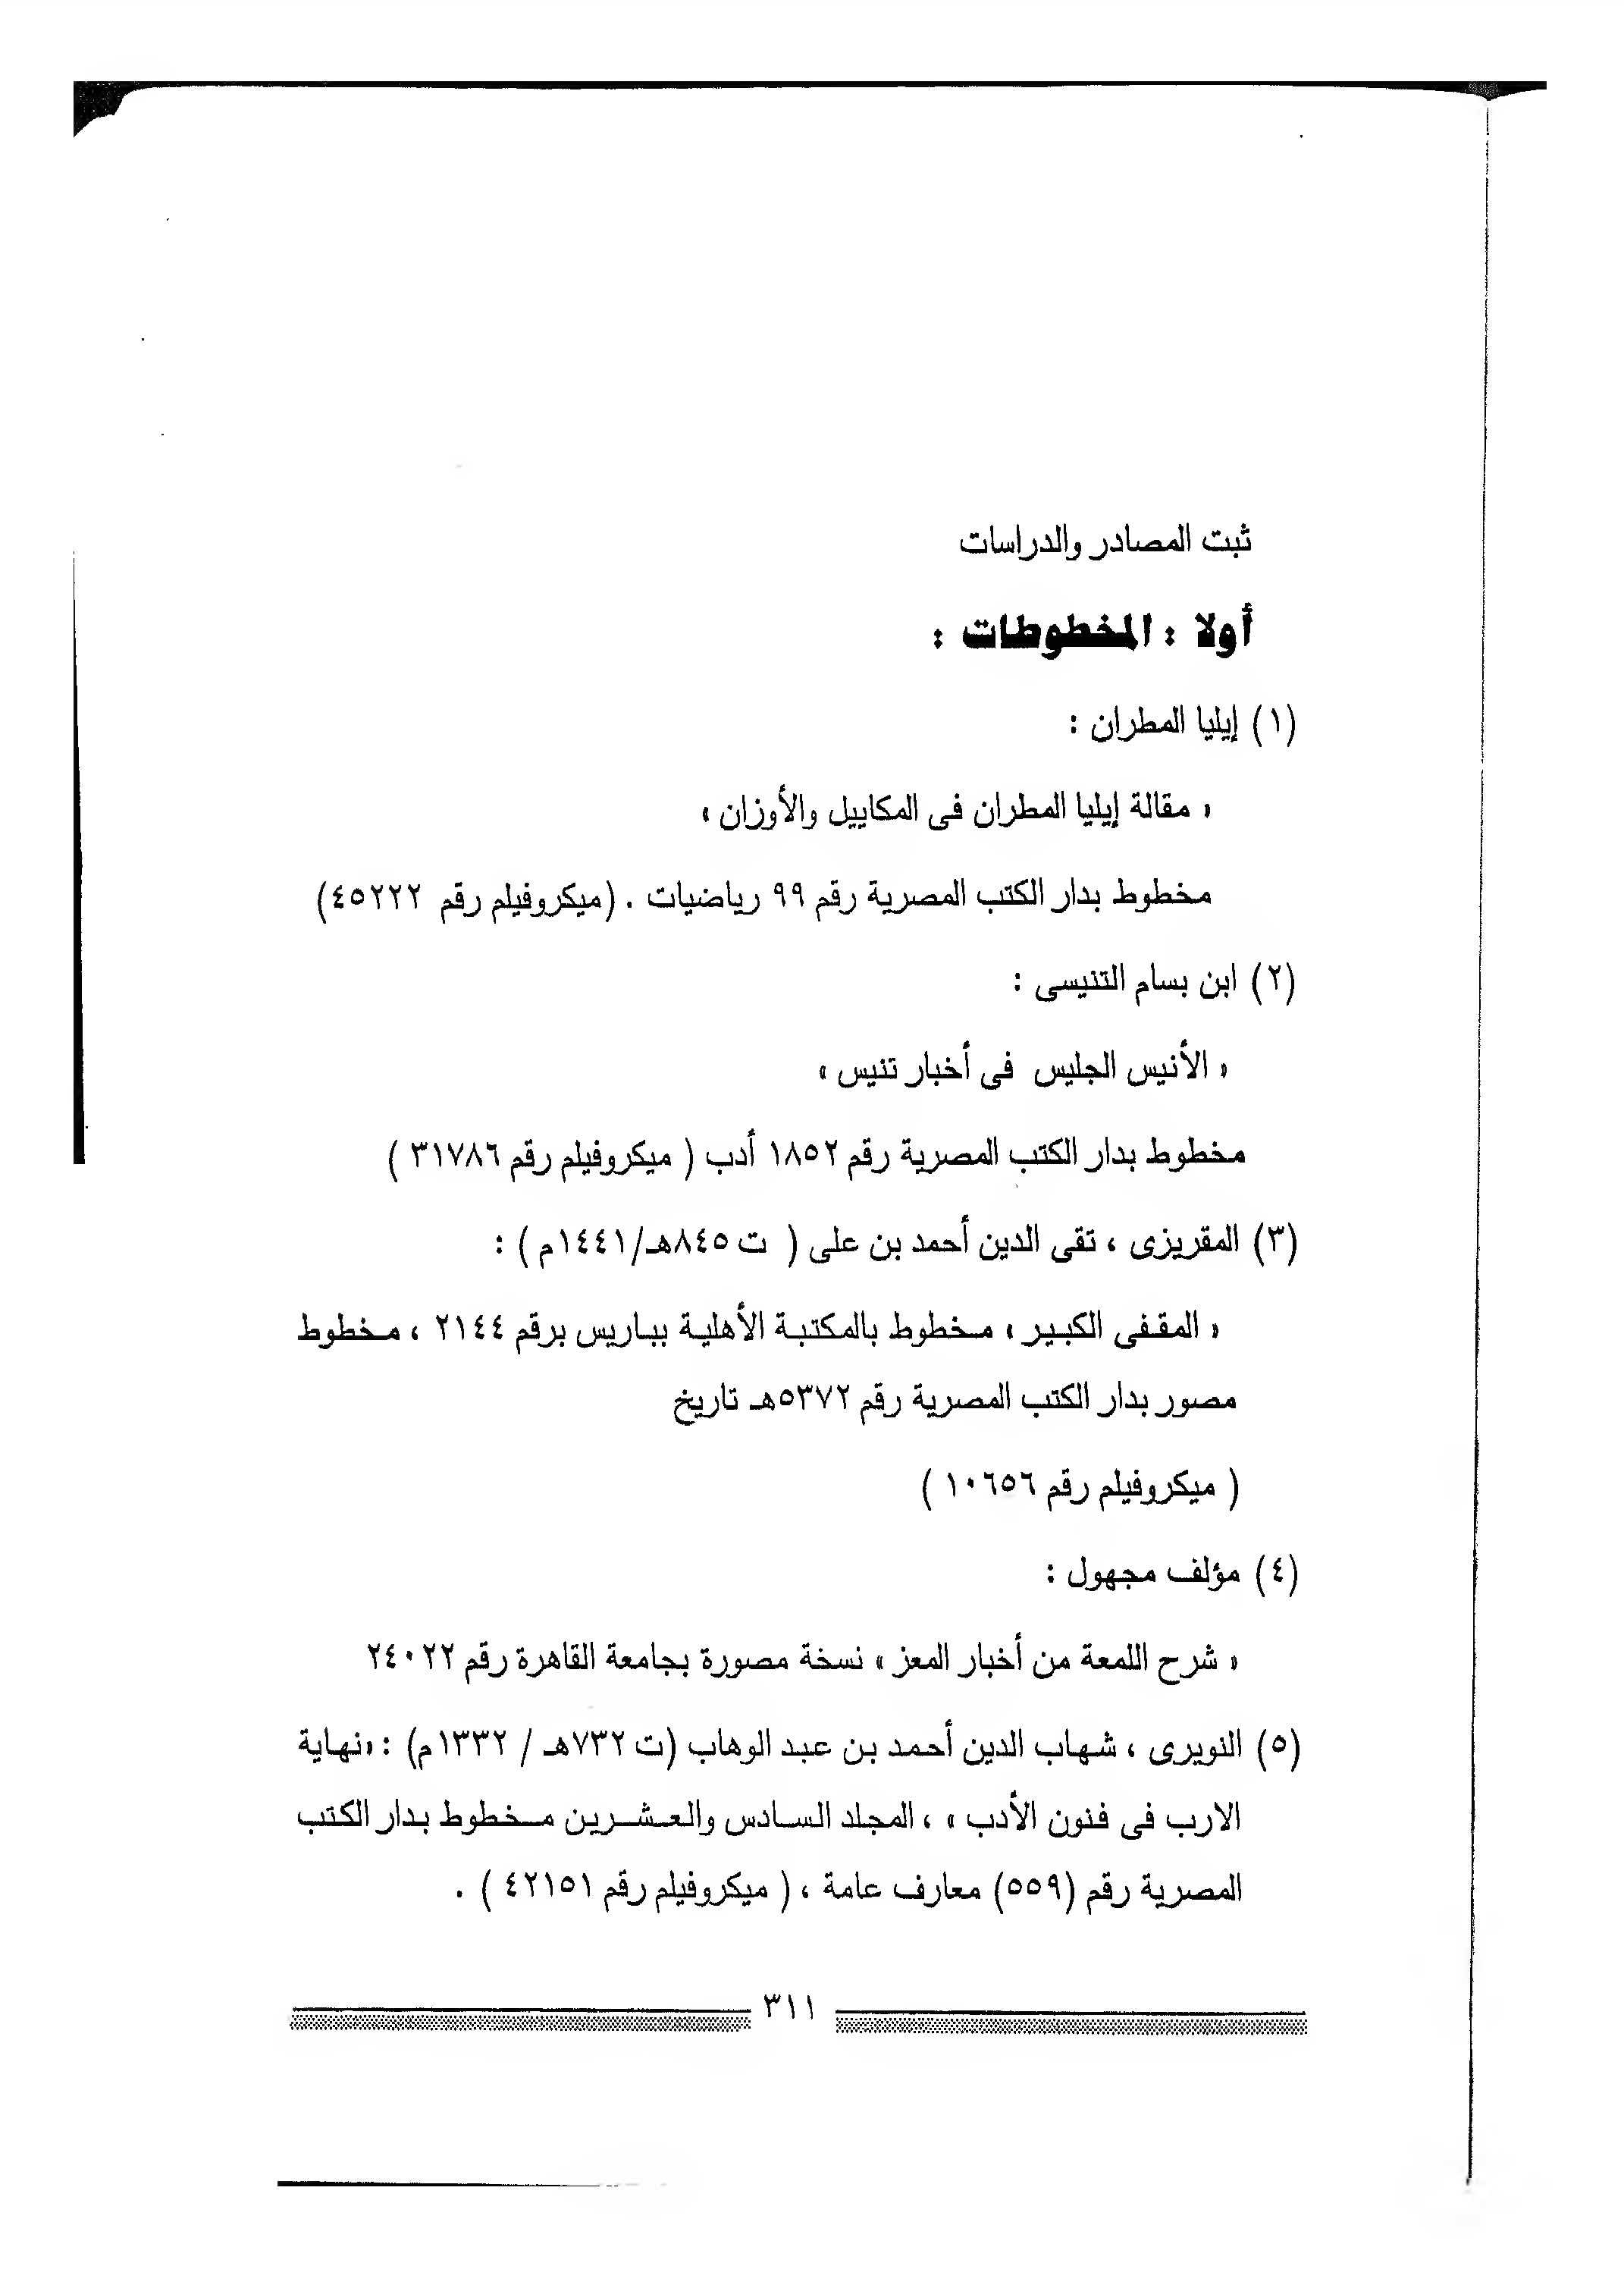 ثبت المصادر والدراسات
أولا : المخطوطات :
(١) إيليا المطران :
« مقالة إيليا المطران فى المكاييل والأوزان »
مخطوط بدار الكتب المصرية رقم ٩٩ رياضيات . (ميكروفيلم رقم ٤٥٢٢٢)
(٢) ابن بسام التنيسى :
« الأنيس الجليس فى أخبار تنيس »
مخطوط بدار الكتب المصرية رقم ١٨٥٢ أدب ( ميكروفيلم رقم ٣١٧٨٦ )
(٣) المقريزى ، تقى الدين أحمد بن على ( ت ٨٤٥هـ/١٤٤١م ) :
« المقفى الكبير » مخطوط بالمكتبة الأهلية بباريس برقم ٢١٤٤ ، مخطوط
مصور بدار الكتب المصرية رقم ٥٣٧٢هـ تاريخ
( ميكروفيلم رقم ١٠٦٥٦ )
(٤) مؤلف مجهول :
« شرح اللمعة من أخبار المعز » نسخة مصورة بجامعة القاهرة رقم ٢٤٠٢٢
(٥) النويرى ، شهاب الدين أحمد بن عبد الوهاب (ت ٧٣٢هـ / ١٣٣٢م) : «نهاية
الارب فى فنون الأدب » ، المجلد السادس والعشرين مخطوط بدار الكتب
المصرية رقم (٥٥٩) معارف عامة ، ( ميكروفيلم رقم ٤٢١٥١ ) .
٣١١